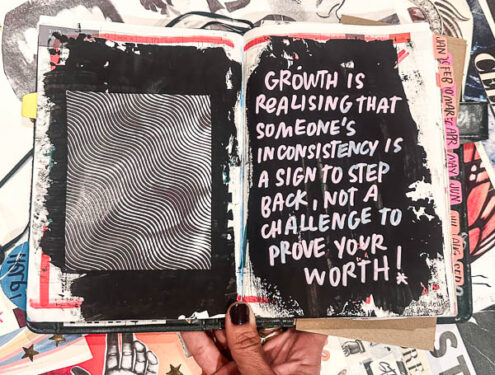 GROWTH IS
REALISING THAT
SOMEONE'S
INCONSISTENCY IS
A SIGN TO STEP
BACK, NOT A
CHALLENGE TO
PROVE YOUR
WORTH!
JAN
FEB
MAR
APR
MAY
JUN
JUL
AUG
SEP